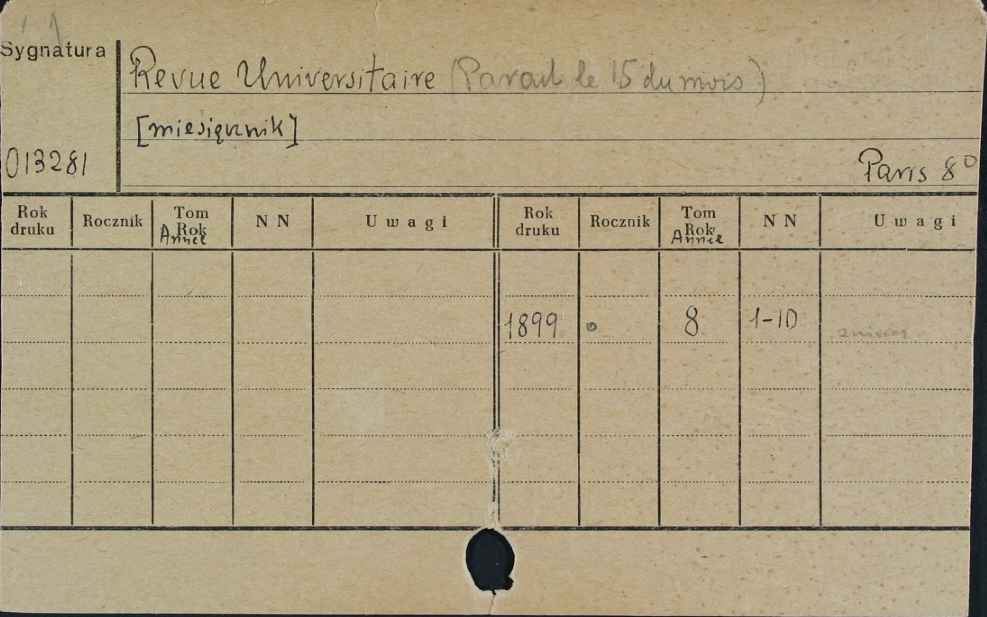 Sygnatura
Revue Universitaire (Parait le 15 du mois)
[miesięcznik]
013281
Paris 8°
Rok druku Rocznik Tom Rok Année NN Uwagi Rok druku Rocznik Tom Rok Année NN Uwagi
1899 8 1-10